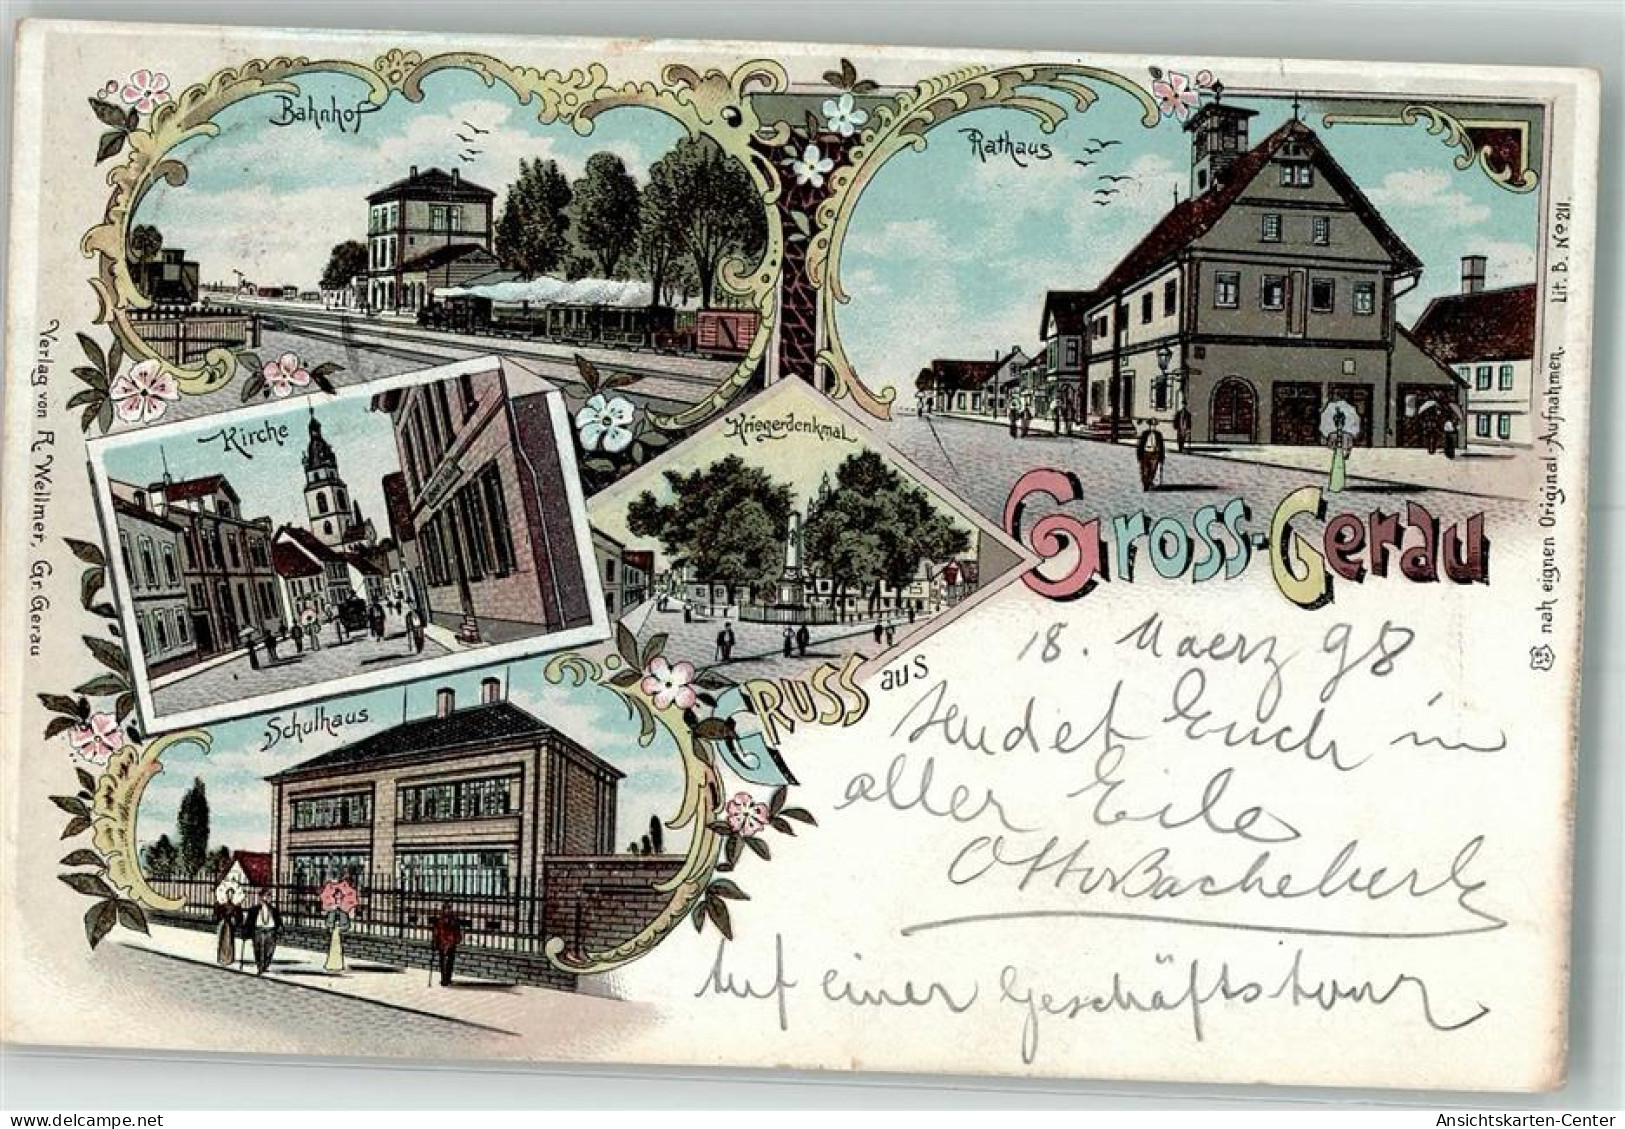 Bahnhof
Rathaus
Kirche
Kriegerdenkmal
Schulhaus
GRUSS aus
GROSS-GERAU
18. Maerz 98
sendet Euch in
aller Eile
Otto
Auf einer Geschäftstour
Verlag von R. Wellmer, Gr. Gerau
nah eignen Original-Aufnahmen. Lit. B. No 211.
Ansichtskarten-Center